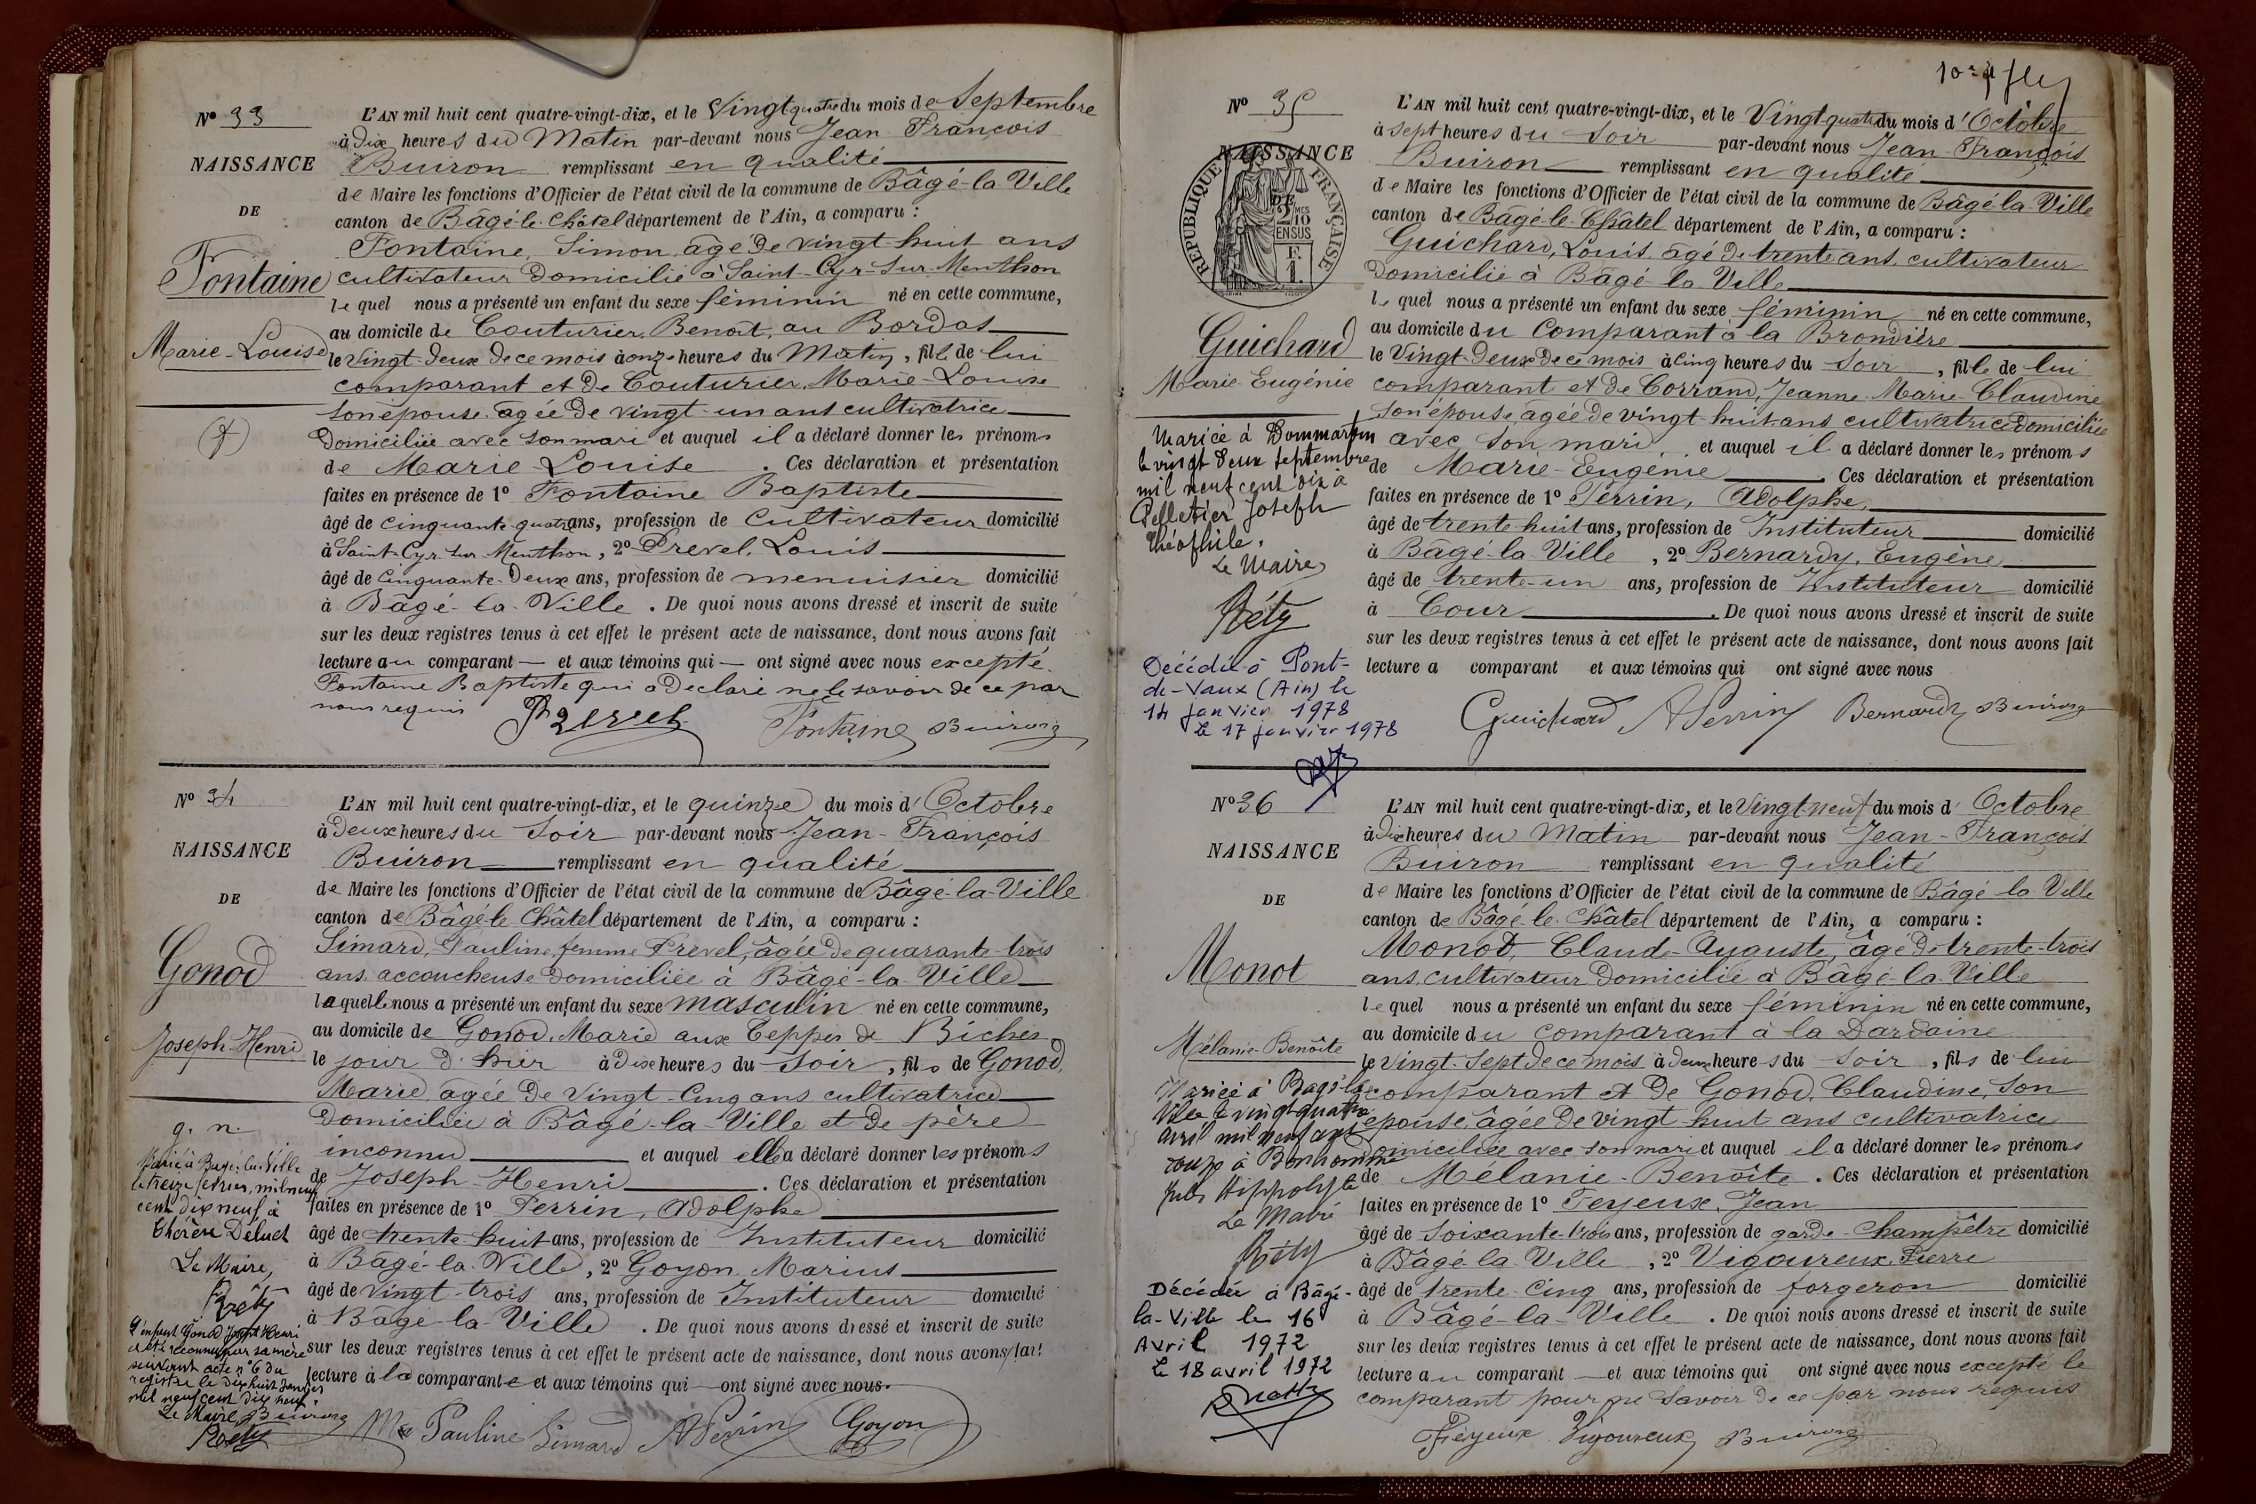 Nº 33
NAISSANCE
DE
Fontaine
Marie-Louise
L'AN mil huit cent quatre-vingt-dix, et le Vingt quatre du mois de Septembre
à Dix heures du Matin par-devant nous Jean François
Buiron remplissant en qualité
de Maire les fonctions d'Officier de l'état civil de la commune de Bâgé-la-Ville
canton de Bâgé-le-Châtel département de l'Ain, a comparu :
Fontaine, Simon, âgé de vingt-huit ans
cultivateur domicilié à Saint-Cyr-sur-Menthon
lequel nous a présenté un enfant du sexe féminin né en cette commune,
au domicile de Couturier, Benoit, au Bordas
le Vingt-deux de ce mois à onze heures du Matin, fille de lui
comparant et de Couturier, Marie-Louise
son épouse âgée de vingt-un ans cultivatrice
domiciliée avec son mari et auquel il a déclaré donner les prénoms
de Marie Louise. Ces déclaration et présentation
faites en présence de 1º Fontaine Baptiste
âgé de cinquante-quatre ans, profession de cultivateur domicilié
à Saint-Cyr-sur-Menthon, 2º Prevel, Louis
âgé de cinquante-deux ans, profession de menuisier domicilié
à Bâgé-la-Ville. De quoi nous avons dressé et inscrit de suite
sur les deux registres tenus à cet effet le présent acte de naissance, dont nous avons fait
lecture au comparant — et aux témoins qui — ont signé avec nous excepté
Fontaine Baptiste qui a déclaré ne le savoir de ce par
nous requis
Prevel Fontaine Buiron
Nº 34
NAISSANCE
DE
Gonod
Joseph-Henri
g. n.
Marié à Bagé-la-Ville
le treize février, mil neuf
cent dix neuf à
Déluet
Le Maire,
Réty
L'enfant Gonod Joseph Henri
a été reconnu par sa mère
suivant acte nº 6 du
registre le dix huit Janvier
mil neuf cent dix neuf.
Le Maire, Buiron
Réty
L'AN mil huit cent quatre-vingt-dix, et le quinze du mois d'Octobre
à Deux heures du Soir par-devant nous Jean-François
Buiron remplissant en qualité
de Maire les fonctions d'Officier de l'état civil de la commune de Bâgé-la-Ville
canton de Bâgé-le-Châtel département de l'Ain, a comparu :
Simard, Pauline, femme Prevel, âgée de quarante-trois
ans, accoucheuse domiciliée à Bâgé-la-Ville
laquelle nous a présenté un enfant du sexe masculin né en cette commune,
au domicile de Gonod, Marie aux Teppes de Biches
le jour d'hier à Dix heures du Soir, fils de Gonod,
Marie âgée de Vingt-Cinq ans cultivatrice
domiciliée à Bâgé-la-Ville et de père
inconnu et auquel elle a déclaré donner les prénoms
de Joseph-Henri. Ces déclaration et présentation
faites en présence de 1º Perrin, Adolphe
âgé de trente huit ans, profession de Instituteur domicilié
à Bâgé-la-Ville, 2º Goyon Marius
âgé de Vingt-trois ans, profession de Instituteur domicilié
à Bâgé-la-Ville. De quoi nous avons dressé et inscrit de suite
sur les deux registres tenus à cet effet le présent acte de naissance, dont nous avons fait
lecture à la comparante et aux témoins qui — ont signé avec nous.
Pauline Simard APerrin Goyon
Nº 35
NAISSANCE
DE
RÉPUBLIQUE FRANÇAISE
2 DMES
10
EN SUS
Guichard
Marie-Eugénie
Mariée à Dommartin
le vingt deux septembre
mil neuf cent dix à
Pelletier Joseph
Théophile.
Le Maire
Réty
Décédée à Pont-
de-Vaux (Ain) le
14 janvier 1978
Le 17 janvier 1978
L'AN mil huit cent quatre-vingt-dix, et le Vingt-quatre du mois d'Octobre
à sept heures du soir par-devant nous Jean-François
Buiron remplissant en qualité
de Maire les fonctions d'Officier de l'état civil de la commune de Bâgé-la-Ville
canton de Bâgé-le-Châtel département de l'Ain, a comparu :
Guichard, Louis, âgé de trente ans, cultivateur
domicilié à Bâgé-la-Ville
lequel nous a présenté un enfant du sexe féminin né en cette commune,
au domicile du comparant à la Brondière
le Vingt-deux de ce mois à Cinq heures du Soir, fille de lui
comparant et de Corrand, Jeanne-Marie-Claudine
son épouse, âgée de vingt-huit ans cultivatrice domiciliée
avec son mari, et auquel il a déclaré donner les prénoms
de Marie-Eugénie. Ces déclaration et présentation
faites en présence de 1º Perrin, Adolphe,
âgé de trente-huit ans, profession de Instituteur domicilié
à Bâgé-la-Ville, 2º Bernardy, Eugène
âgé de trente-un ans, profession de Instituteur domicilié
à Cour. De quoi nous avons dressé et inscrit de suite
sur les deux registres tenus à cet effet le présent acte de naissance, dont nous avons fait
lecture a comparant et aux témoins qui ont signé avec nous
Guichard APerrin Bernardy Buiron
Nº 36
NAISSANCE
DE
Monot
Mélanie-Benoîte
Mariée à Bagé-la-
Ville le vingt quatre
avril mil neuf cent
douze à Bonhomme
Jules Hippolyte
Le Maire
Réty
Décédée à Bâgé-
la-Ville le 16
Avril 1972
Le 18 avril 1972
L'AN mil huit cent quatre-vingt-dix, et le Vingt-neuf du mois d'Octobre
à Dix heures du Matin par-devant nous Jean-François
Buiron remplissant en qualité
de Maire les fonctions d'Officier de l'état civil de la commune de Bâgé-la-Ville
canton de Bâgé-le-Châtel département de l'Ain, a comparu :
Monot, Claude-Auguste, âgé de trente-trois
ans, cultivateur domicilié à Bâgé-la-Ville
lequel nous a présenté un enfant du sexe féminin né en cette commune,
au domicile du comparant à la Dardaine
le Vingt-Sept de ce mois à deux heures du Soir, fils de lui
comparant et de Gonod, Claudine, son
épouse, âgée de vingt huit ans cultivatrice
domiciliée avec son mari et auquel il a déclaré donner les prénoms
de Mélanie-Benoîte. Ces déclaration et présentation
faites en présence de 1º Feyeux, Jean
âgé de soixante-trois ans, profession de garde-Champêtre domicilié
à Bâgé-la-Ville, 2º Vigoureux, Pierre
âgé de trente-Cinq ans, profession de forgeron domicilié
à Bâgé-la-Ville. De quoi nous avons dressé et inscrit de suite
sur les deux registres tenus à cet effet le présent acte de naissance, dont nous avons fait
lecture au comparant — et aux témoins qui ont signé avec nous excepté le
comparant pour ne savoir de ce par nous requis
Feyeux Vigoureux Buiron